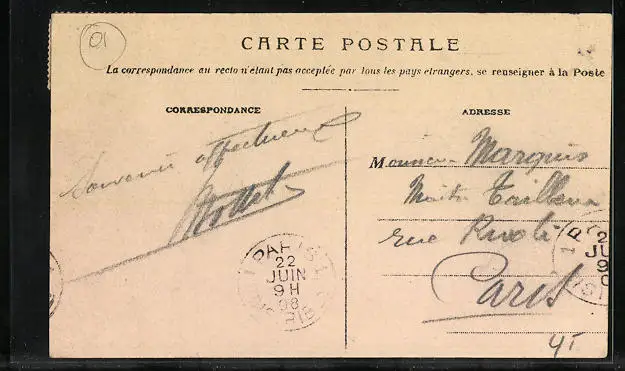 01
CARTE POSTALE
La correspondance au recto n'étant pas acceptée par tous les pays étrangers, se renseigner à la Poste
CORRESPONDANCE
Souvenir affectueux
ADRESSE
Monsieur Marquis
Maitre Tailleur
rue Rivoli
Paris
PARIS
22
JUIN
9H
08